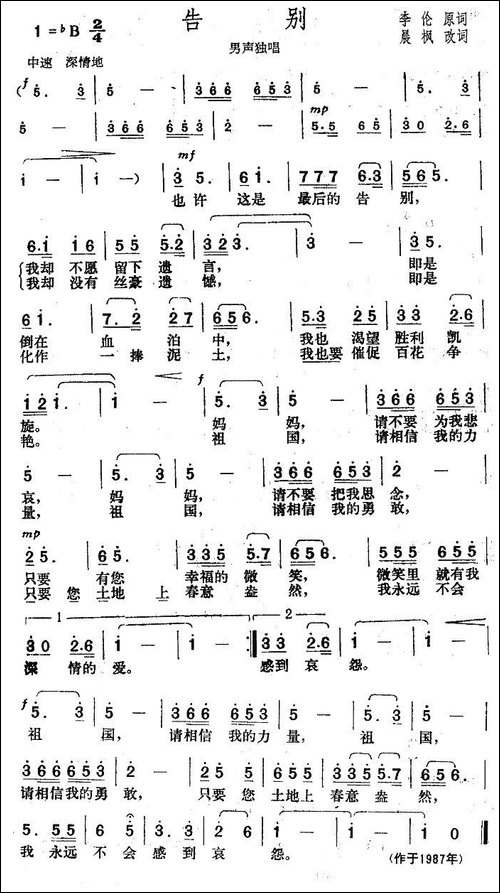 告别
1=♭B 2/4
李伦 原词
晨枫 改词
男声独唱
中速 深情地
(5. 3 | 5 — | 3 6 6 6 5 3 | 5 — | 5. 3 |
5 — | 3 6 6 6 5 3 | 2 — | mp 5.5 6 5 | 3 0 2.6 |
1 — | 1 —) | mf 3 5. | 6 1. | 7 7 7 6.3 | 5 6 5. |
也许 这是 最后的 告 别,
6.1 1 6 | 5 5 5.2 | 3 2 3. | 3 — | 3 5. |
我却 不愿 留下 遗 言, 即是
我却 没有 丝豪 遗 憾, 即是
6 1. | 7. 2 2 7 | 6 5 6. | 5.3 2 5 | 3 3 2.6 |
倒在 血 泊 中, 我也 渴望 胜利 凯
化作 一 捧 泥 土, 我也要 催促 百花 争
1 2 1. | 1 — | f 5. 3 | 5 — | 3 6 6 6 5 3 |
旋。 妈 妈, 请不要 为我悲
艳。 祖 国, 请相信 我的力
5 — | 5. 3 | 5 — | 3 6 6 6 5 3 | 2 — |
哀, 妈 妈, 请不要 把我思 念,
量, 祖 国, 请相信 我的勇 敢,
mp 2 5. | 6 5. | 3 3 5 5.7 | 6 5 6. | 5 5 5 5 5 5 |
只要 有您 幸福的 微 笑, 微笑里 就有我
只要 您 土地 上 春意 盎 然, 我永远 不会
1 2
3 0 2.6 | 1 — | 1 — :| 3 3 2.6 | 1 — | 1 — |
深 情的 爱。 感到 哀 怨。
f 5. 3 | 5 — | 3 6 6 6 5 3 | 5 — | 5. 3 | 5 — |
祖 国, 请相信 我的力 量, 祖 国,
3 6 6 6 5 3 | 2 — | 2 5 5 | 6 5 5 | 3 3 5 5.7 | 6 5 6 |
请相信我的勇 敢, 只要 您 土地上 春意 盎 然,
5. 5 5 | 6 5 | 3. 3 | 2 6 | 1 — | 1 — | 1 0 ‖
我 永远 不 会 感 到 哀 怨。
(作于1987年)